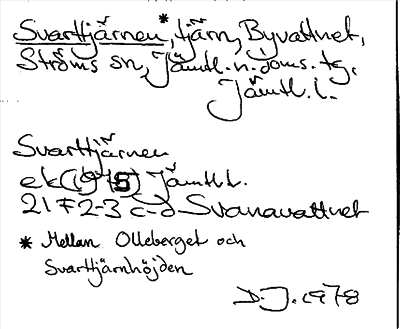 Svarttjärnen*, tjärn, Byvattnet,
Ströms sn, Jämtl. n. doms. tg.
Jämtl. l.
Svarttjärnen
ek (1975) Jämtl. l.
21F 2-3 c-d Svanavattnet
* Mellan Olleberget och
Svarttjärnhöjden
D.J. 1978